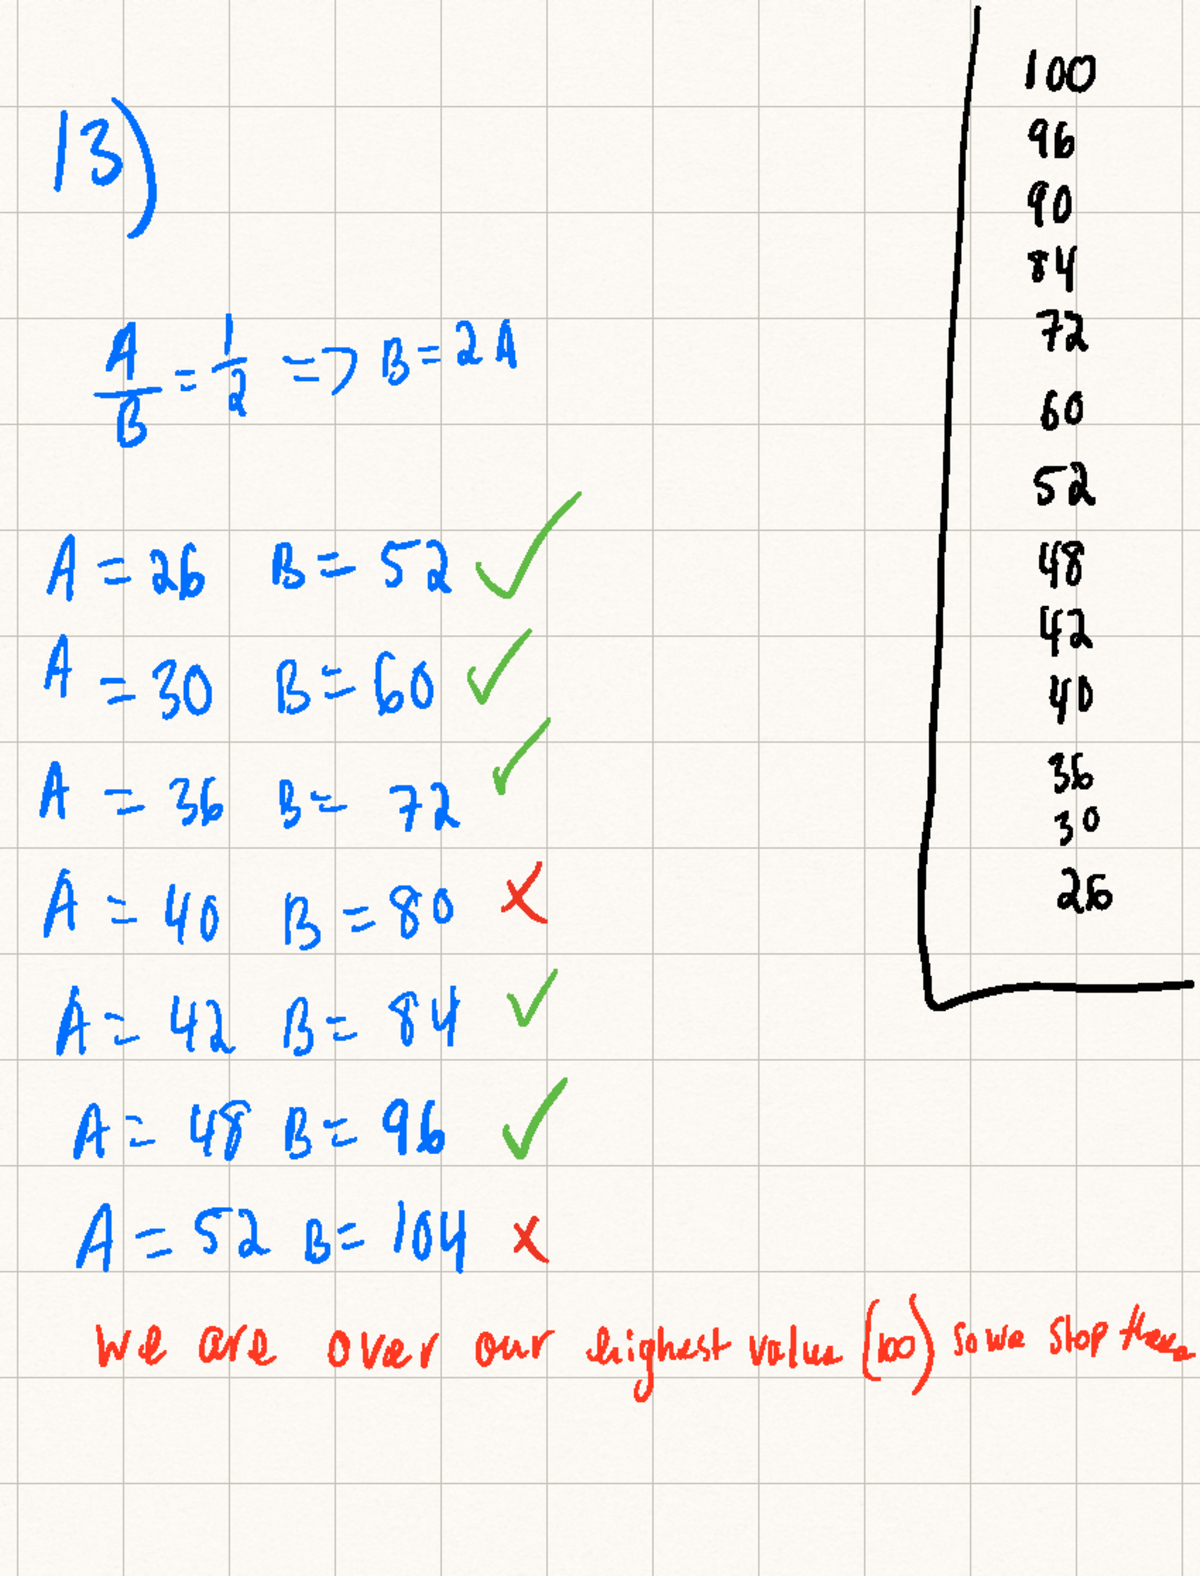 13)
100
96
90
84
72
60
52
48
42
40
36
30
26
A/B = 1/2 => B = 2A
A = 26 B = 52 ✓
A = 30 B = 60 ✓
A = 36 B = 72 ✓
A = 40 B = 80 X
A = 42 B = 84 ✓
A = 48 B = 96 ✓
A = 52 B = 104 X
we are over our highest value (100) so we stop